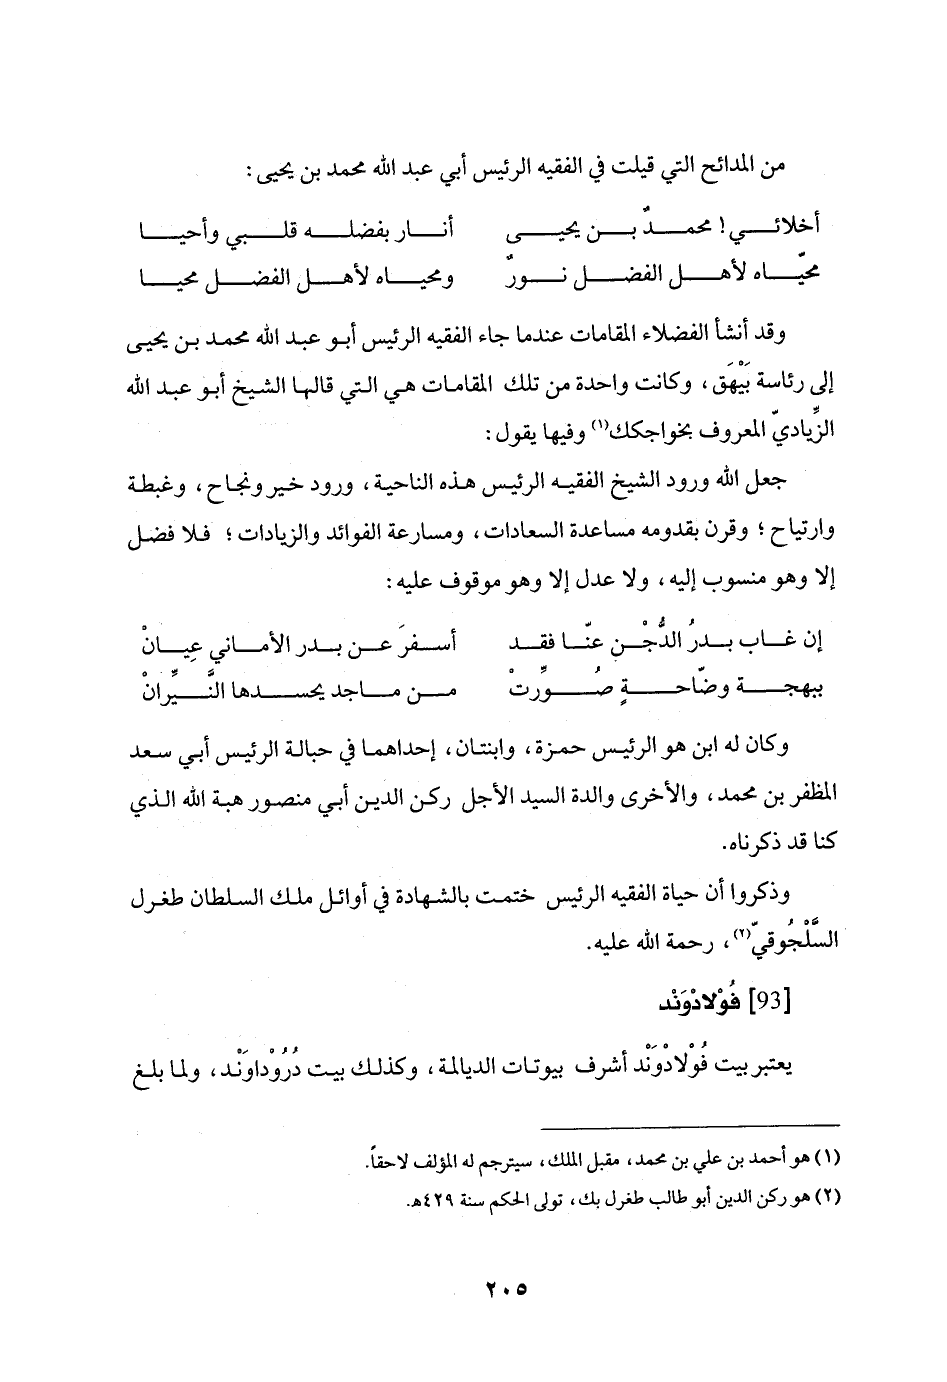 من المدائح التي قيلت في الفقيه الرئيس أبي عبد الله محمد بن يحيى :
أخلائي ! محمدٌ بن يحيى أنار بفضله قلبي وأحيا
محيّاه لأهل الفضل نورٌ ومحياه لأهل الفضل محيا
وقد أنشأ الفضلاء المقامات عندما جاء الفقيه الرئيس أبو عبد الله محمد بن يحيى
إلى رئاسة بَيْهَق ، وكانت واحدة من تلك المقامات هي التي قالها الشيخ أبو عبد الله
الزِّياديّ المعروف بخواجكك(١) وفيها يقول :
جعل الله ورود الشيخ الفقيه الرئيس هذه الناحية ، ورود خير ونجاح ، وغبطة
وارتياح ؛ وقرن بقدومه مساعدة السعادات ، ومسارعة الفوائد والزيادات ؛ فلا فضل
إلا وهو منسوب إليه ، ولا عدل إلا وهو موقوف عليه :
إن غاب بدرُ الدُّجْن عنّا فقد أسفرَ عن بدر الأماني عِيانْ
ببهجة وضّاحةٍ صُوِّرتْ من ماجد يحسدها النَّيِّرانْ
وكان له ابن هو الرئيس حمزة ، وابنتان ، إحداهما في حبالة الرئيس أبي سعد
المظفر بن محمد ، والأخرى والدة السيد الأجل ركن الدين أبي منصور هبة الله الذي
كنا قد ذكرناه .
وذكروا أن حياة الفقيه الرئيس ختمت بالشهادة في أوائل ملك السلطان طغرل
السَّلْجُوقيّ(٢) ، رحمة الله عليه .
[93] فُوْلادْوَنْد
يعتبر بيت فُوْلادْوَنْد أشرف بيوتات الديالمة ، وكذلك بيت دُرُوْداوَنْد ، ولما بلغ
(١) هو أحمد بن علي بن محمد ، مقبل الملك ، سيترجم له المؤلف لاحقاً .
(٢) هو ركن الدين أبو طالب طغرل بك ، تولى الحكم سنة ٤٢٩هـ .
٢٠٥